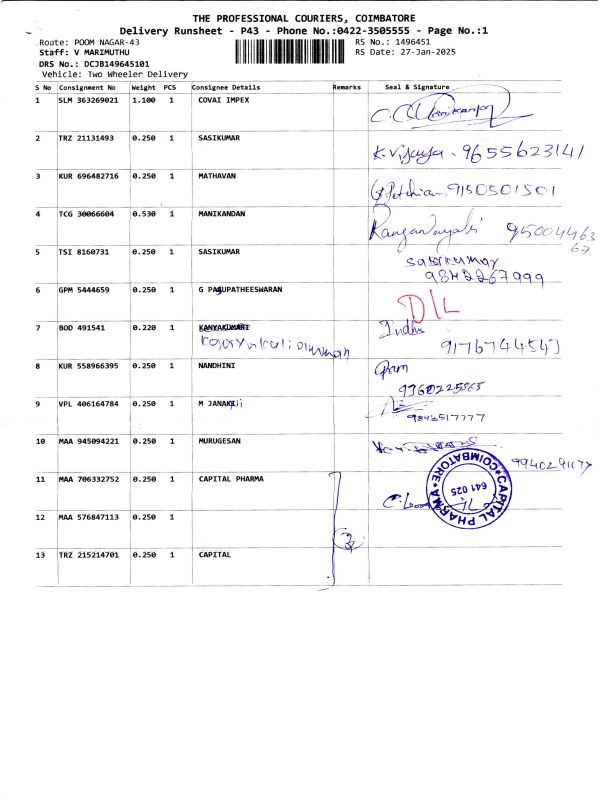 THE PROFESSIONAL COURIERS, COIMBATORE
Delivery Runsheet - P43 - Phone No.:0422-3505555 - Page No.:1
Route: POOM NAGAR-43 RS No.: 1496451
Staff: V MARIMUTHU RS Date: 27-Jan-2025
DRS No.: DCJB149645101
Vehicle: Two Wheeler Delivery
S No Consignment No Weight PCS Consignee Details Remarks Seal & Signature
1 SLM 363269021 1.100 1 COVAI IMPEX
2 TRZ 21131493 0.250 1 SASIKUMAR
K. Vijaya. 9655623141
3 KUR 696482716 0.250 1 MATHAVAN 9150501501
4 TCG 30066604 0.530 1 MANIKANDAN
95004463
67
5 TSI 8160731 0.250 1 SASIKUMAR Sasikumar
9842267999
6 GPM 5444659 0.250 1 G PASUPATHEESWARAN D/L
7 BOD 491541 0.220 1 KANYAKUMARI Indhu
8 KUR 558966395 0.250 1 NANDHINI
9360225565
9 VPL 406164784 0.250 1 M JANAKI
9842517777
10 MAA 945094221 0.250 1 MURUGESAN
11 MAA 706332752 0.250 1 CAPITAL PHARMA
CAPITAL PHARMA
COIMBATORE
641 025
12 MAA 576847113 0.250 1
3
13 TRZ 215214701 0.250 1 CAPITAL